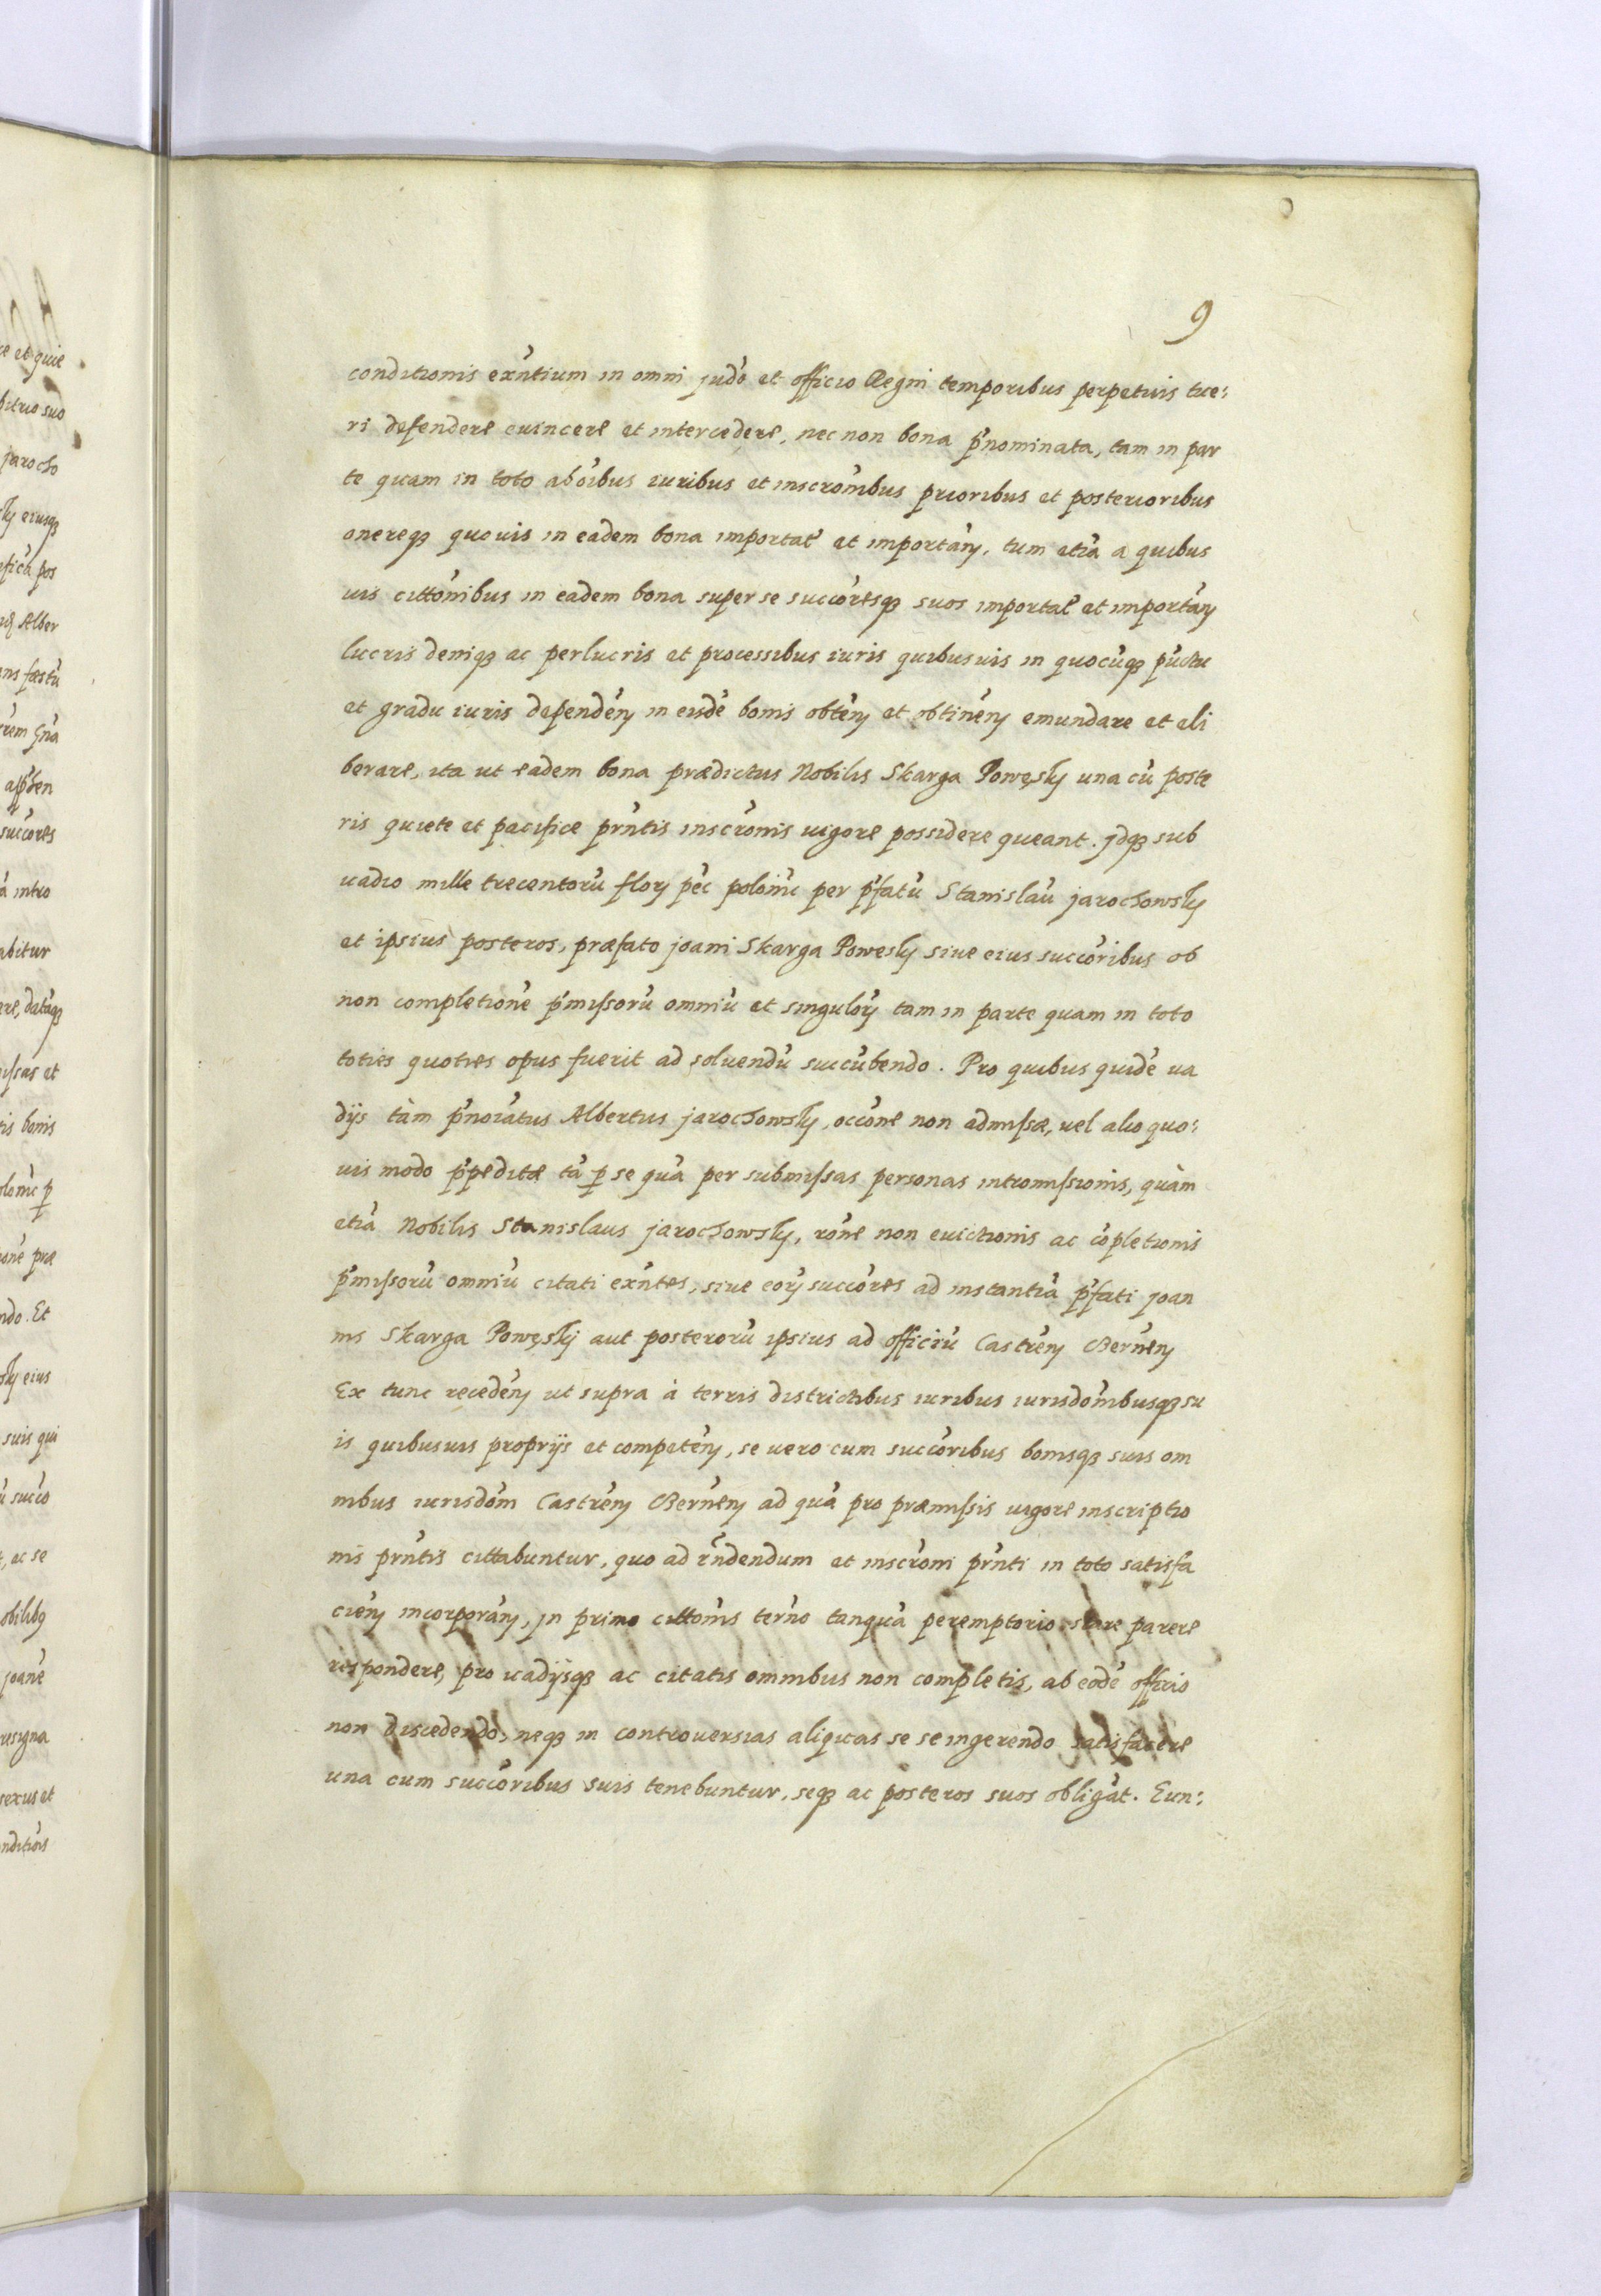 9
conditionis exńtium in omni judó et officio Regni temporibus perpetuis tue:
ri defendere euincere et intercedere, nec non bona ṕnominata, tam in par
te quam in toto ab óibus iuribus et inscrómibus prioribus et posterioribus
onereqꝫ quouis in eadem bona importat́ et importań, tum etiá a quibus
uis cittónibus in eadem bona super se succóresqꝫ suos importat́ et importań
lucris deniqꝫ ac perlucris et processibus iuris quibusuis in quocúqꝫ púctu
et gradu iuris dependéń in eisdé bonis obtéń et obtinéń emundare et eli
berare, ita ut eadem bona prædictus Nobilis Skarga Powęsky una cú poste
ris quiete et pacifice prńtis inscrónis uigore possidere queant. jdqꝫ sub
uadio mille trecentorú florꝝ péc polonić per ṕfatú Stanislaú jarochowsky
et ipsius posteros, præfato joani Skarga Powesky siue eius succóribus ob
non completioné ṕmissorú omniú et singulórꝝ tam in parte quam in toto
toties quoties opus fuerit ad soluendú succúbendo. Pro quibus quidé ua
dijs tàm ṕnoíatus Albertus jarochowsky, occóne non admissæ, uel alio quo:
uis modo ṕpeditæ tá ꝑ se quá per submissas personas intromissionis, quàm
etiá Nobilis Stanislaus jarochowsky, róne non euictionis ac cópletionis
ṕmissorú omniú citati exńtes, siue eorꝝ succóres ad instantiá ṕfati joan
nis Skarga Powęskj aut posterorú ipsius ad officiú Castréń Bernéń
Ex tunc recedéń ut supra à terris districtibus iuribus iurisdómibusqꝫ su
is quibusuis proprijs et competéń, se uero cum succóribus bonisqꝫ suis om
nibus iurisdóm Castréń Bernéń ad quá pro præmissis uigore inscriptio
nis prńtis cittabuntur, quo ad rńdendum et inscróni prńti in toto satisfa
ciéń incorporáń, jn primo cittónis terńo tanquá peremptorio stare parere
respondere, pro uadijsqꝫ ac citatis omnibus non completis, ab eodé officio
non discedendo, neqꝫ in controuersias aliquas se se ingerendo satisfacere
una cum succóribus suis tenebuntur, seqꝫ ac posteros suos obligát. Eun: